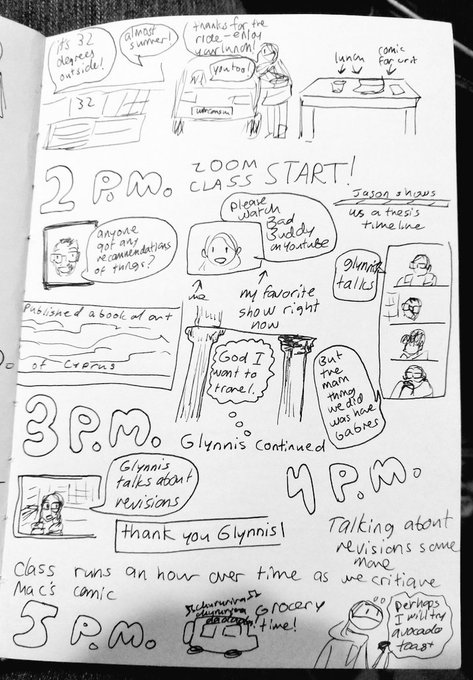 it's 32
degrees
outside!
almost
summer!
32
thanks for the
ride - enjoy
your lunch!
you too!
Wisconsin
lunch
comic
for crit
2 P.M.
ZOOM
CLASS START!
Jason shows
us a thesis
timeline
anyone
got any
recommendations
of things?
Please
watch
Bad
Buddy
on Youtube
me
my favorite
show right
now
glynnis
talks
Published a book of art
of Cyprus
God I
want to
travel.
But
the
main
thing
we did
was have
babies
3 P.M.
Glynnis continued
Glynnis
talks about
revisions
thank you Glynnis!
4 P.M.
Talking about
revisions some
more
Class runs an hour over time as we critique
Mac's comic
5 P.M.
dadada
Grocery
time!
Perhaps
I will try
avocado
toast